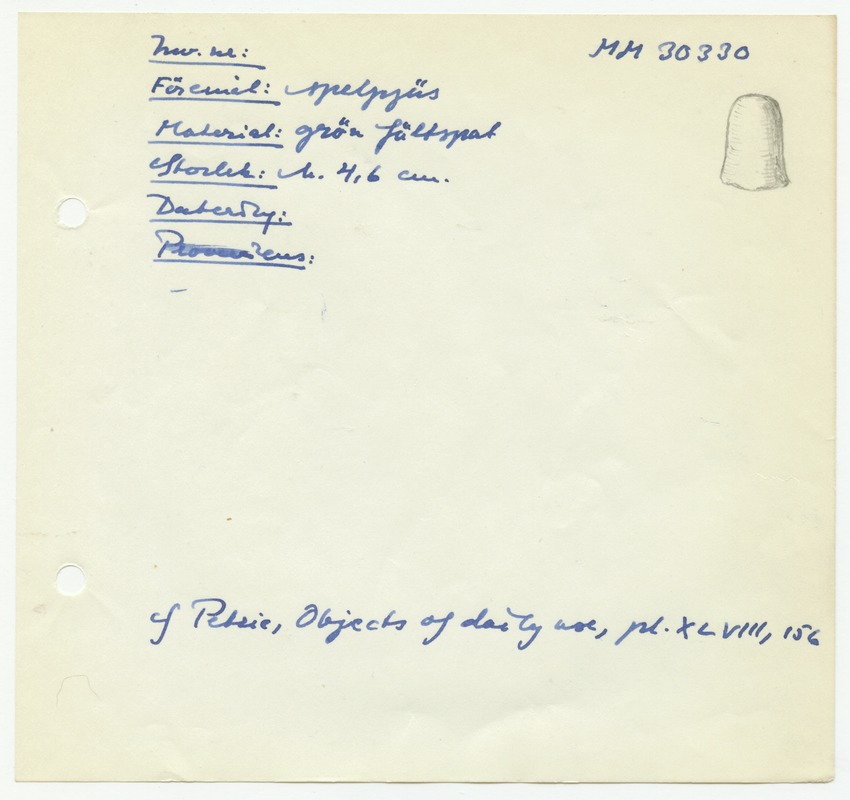 Inv. nr:
MM 30330
Föremål: spelpjäs
Material: grön fältspat
Storlek: h. 4,6 cm.
Datering:
Proveniens:
cf Petrie, Objects of daily use, pl. XLVIII, 156